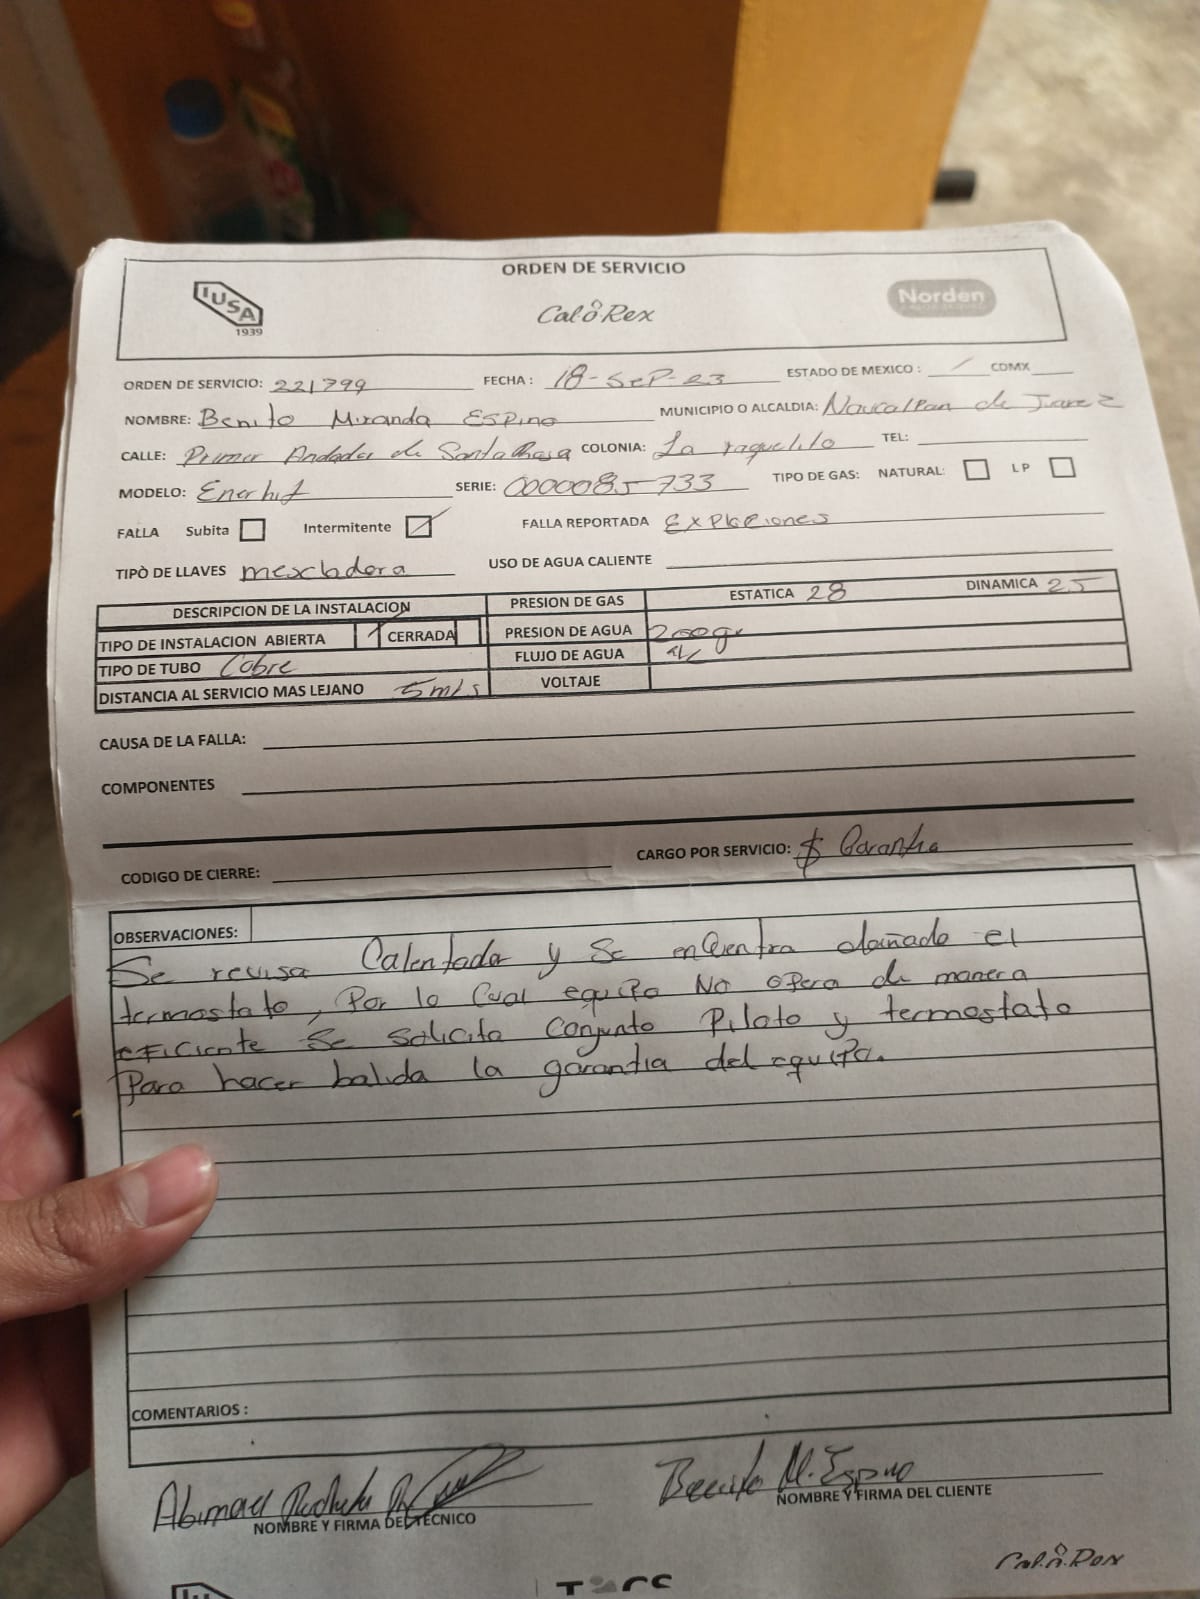 ORDEN DE SERVICIO
IUSA
1939
CaloRex
Norden
ORDEN DE SERVICIO: 221799 FECHA : 18-SeP-23 ESTADO DE MEXICO : / CDMX
NOMBRE: Benito Miranda ESPino MUNICIPIO O ALCALDIA: Naucalpan de Juarez
CALLE: Primer Andador de Santa Rosa COLONIA: La raquelito TEL:
MODELO: Enerhit SERIE: 0000085733 TIPO DE GAS: NATURAL: LP
FALLA Subita Intermitente FALLA REPORTADA EXPLOCiones
TIPÒ DE LLAVES mescladora USO DE AGUA CALIENTE
DESCRIPCION DE LA INSTALACION PRESION DE GAS ESTATICA 28 DINAMICA 25
TIPO DE INSTALACION ABIERTA / CERRADA PRESION DE AGUA 200gr
TIPO DE TUBO Cobre FLUJO DE AGUA
DISTANCIA AL SERVICIO MAS LEJANO 5mts VOLTAJE
CAUSA DE LA FALLA:
COMPONENTES
CODIGO DE CIERRE: CARGO POR SERVICIO: $ Garantia
OBSERVACIONES:
Se revisa Calentador y Se enCuentra dañado el
termostato, Por lo Cual equipo No opera de manera
eficiente Se solicita Conjunto Piloto y termostato
Para hacer balida la garantia del equipo.
COMENTARIOS :
Abimael
Benito M. Espino
NOMBRE Y FIRMA DEL TECNICO
NOMBRE Y FIRMA DEL CLIENTE
CaloRex